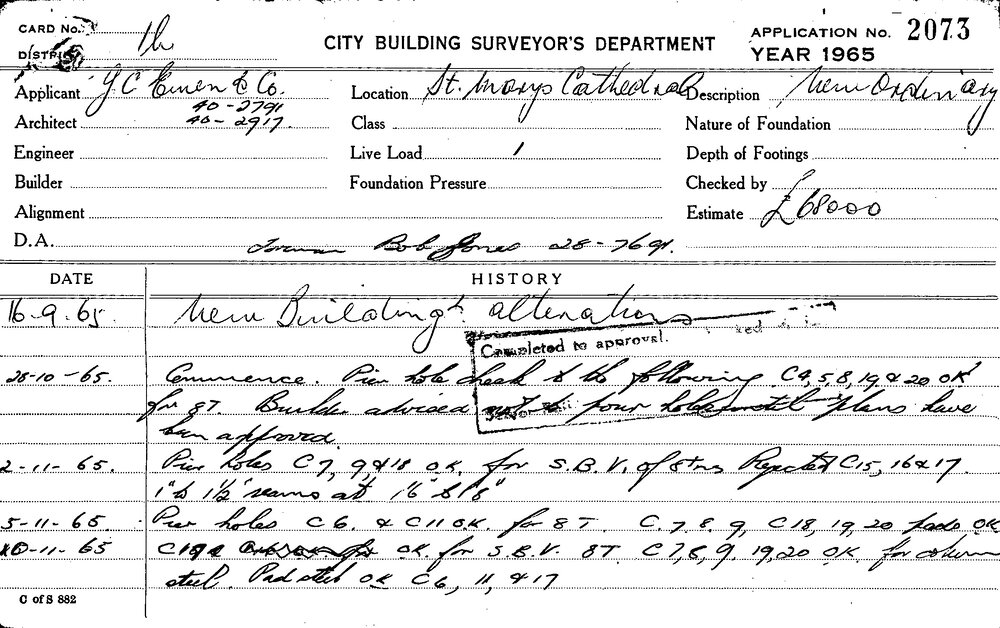 CARD No.
DISTRICT
CITY BUILDING SURVEYOR'S DEPARTMENT
APPLICATION No. 2073
YEAR 1965
Applicant J.C. Ewen & Co. Location St. Marys Cathedral Description New Ordinary
40-2791
Architect 40-2917. Class Nature of Foundation
Engineer Live Load 1 Depth of Footings
Builder Foundation Pressure Checked by
Alignment Estimate £68000
D.A. Bob Jones 28-7691.
DATE HISTORY
16-9-65. New Building & alterations
Completed to approval.
28-10-65. Commence. Pier hole check to the following C4,5,8,19 & 20 OK
for 8T. Builder advised not to pour holes until plans have
been approved.
2-11-65. Pier holes C7, 9, & 18 OK. for S.B.V. of 8 tns Rejected C15, 16 & 17.
1" to 1½" seams at 1'6" & 1'8"
5-11-65. Pier holes C6. & C11 OK. for 8T C.7, 8, 9, C18, 19, 20 pads OK
10-11-65 OK. for S.B.V. 8T C7,8,9, 19,20 OK. for column
steel. Pad steel OK C6, 11, & 17
C of S 882